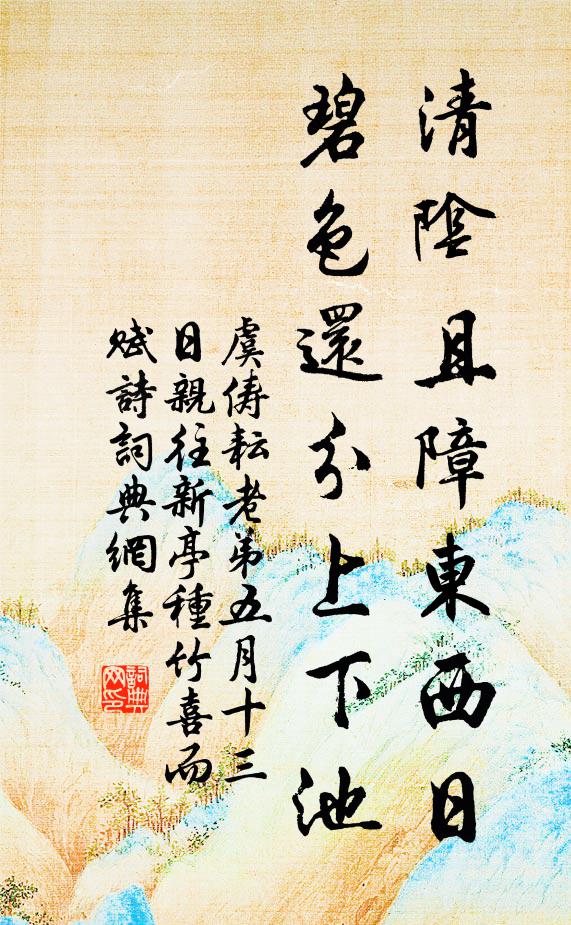 清陰且障東西日
碧色還分上下池
虞俦耘老弟五月十三
日親往新亭種竹喜而
赋詩詞典網集
詞典
网印